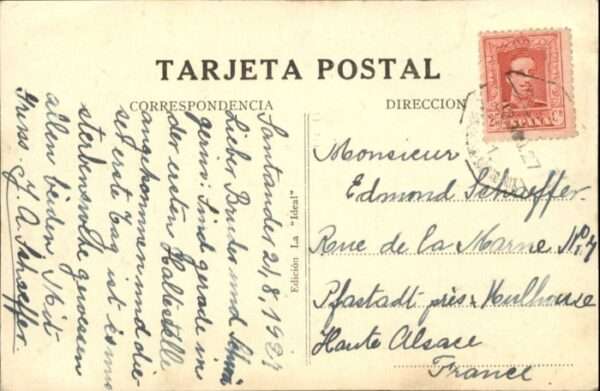 TARJETA POSTAL
CORRESPONDENCIA
DIRECCION
25 Cs
ESPAÑA
Edición La "Ideal"
Santander 21/8, 1927
Lieber Bruder und Schwä
gerin: Sind gerade in
der ersten Haltestelle
angekommen und die
se erste Tag ist
sterbenswohl
allen beiden, Mit
Gruss. J. A. Schaeffer.
Monsieur
Edmond Schaeffer.
Rue de la Marne No 7
Pfastadt près Mulhouse
Haute Alsace
France